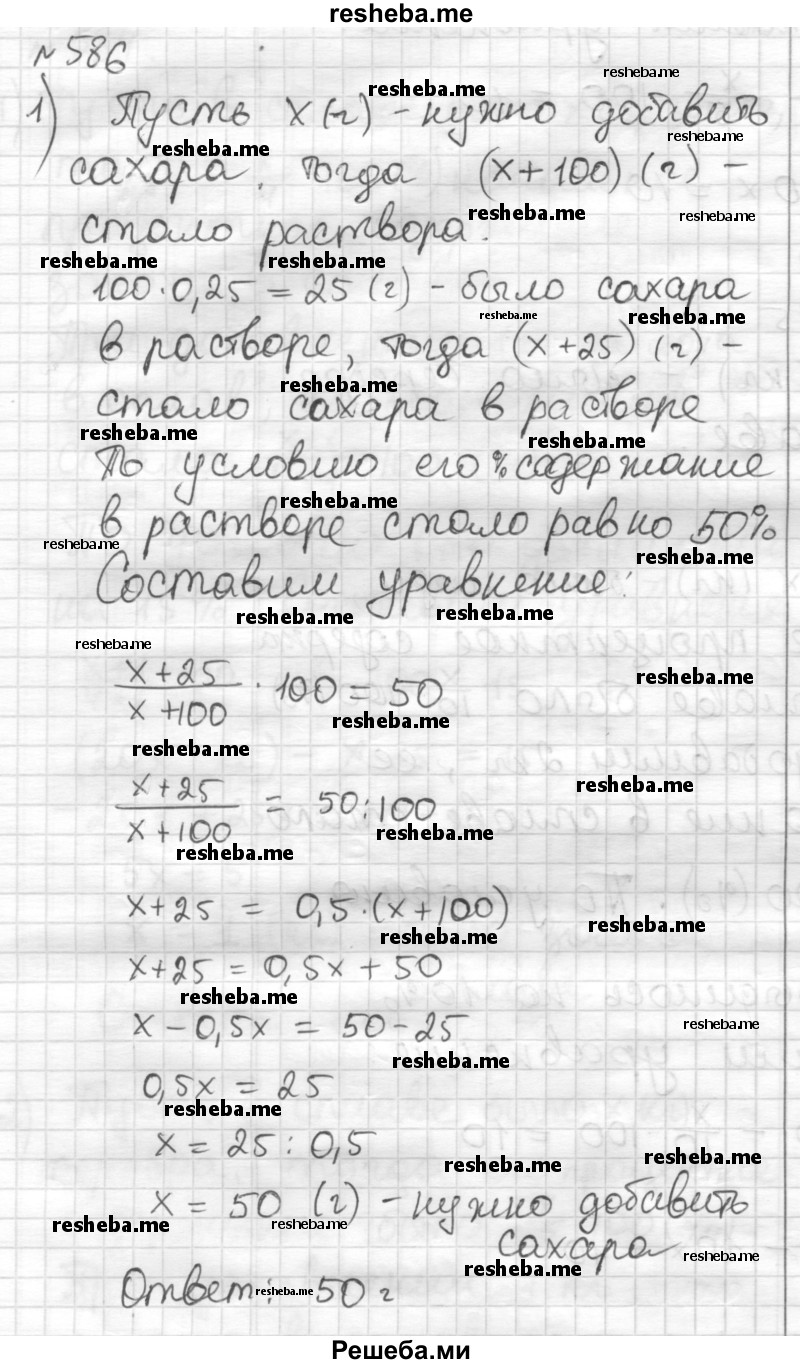 resheba.me
№586
resheba.me
resheba.me
1) Пусть x (г) - нужно добавить
resheba.me
resheba.me
сахара, тогда (x+100) (г) -
resheba.me
resheba.me
стало раствора.
resheba.me
resheba.me
100·0,25 = 25 (г) - было сахара
resheba.me
resheba.me
в растворе, тогда (x+25) (г) -
resheba.me
стало сахара в растворе
resheba.me
resheba.me
По условию его % содержание
resheba.me
в растворе стало равно 50%
resheba.me
resheba.me
Составим уравнение:
resheba.me
resheba.me
resheba.me
x+25
x+100
· 100 = 50
resheba.me
resheba.me
resheba.me
resheba.me
x+25
x+100
= 50:100
resheba.me
resheba.me
x+25 = 0,5·(x+100)
resheba.me
resheba.me
x+25 = 0,5x + 50
resheba.me
x - 0,5x = 50-25
resheba.me
resheba.me
0,5x = 25
resheba.me
x = 25 : 0,5
resheba.me
resheba.me
x = 50 (г) - нужно добавить
resheba.me
resheba.me
сахара
resheba.me
resheba.me
Ответ: 50 г
resheba.me
Решеба.ми